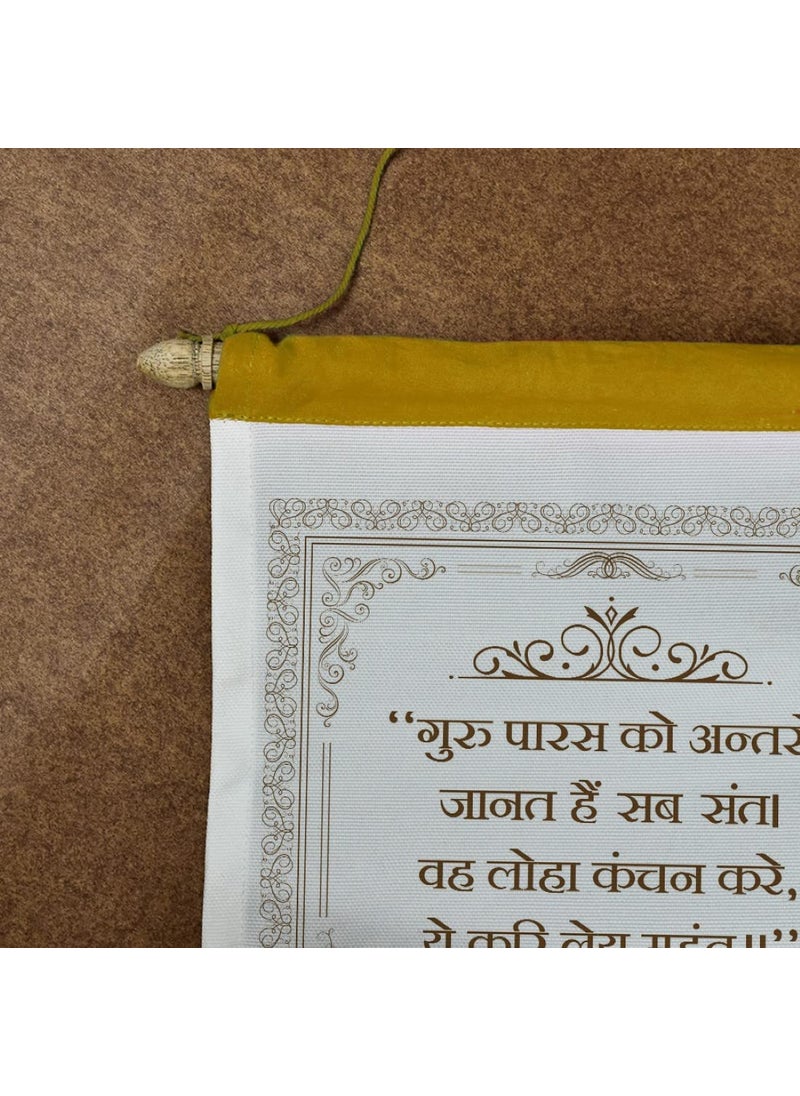 “गुरु पारस को अन्तरो
जानत हैं सब संत।
वह लोहा कंचन करे,
ये करि लेय महंत॥”